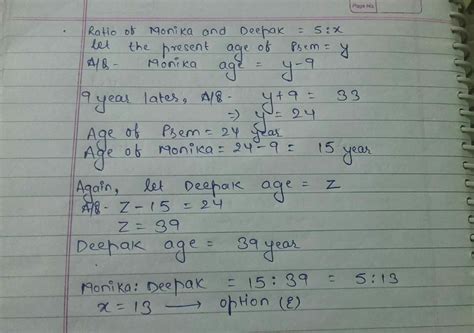 Page No.
Ratio of Monika and Deepak = 5:x
let the present age of Prem = y
A/B - Monika age = y-9
9 year later, A/B - y+9 = 33
⇒ y = 24
Age of Prem = 24 year
Age of Monika = 24-9 = 15 year
Again, let Deepak age = z
A/B - z - 15 = 24
z = 39
Deepak age = 39 year
Monika : Deepak = 15 : 39 = 5:13
x = 13 → option (E)